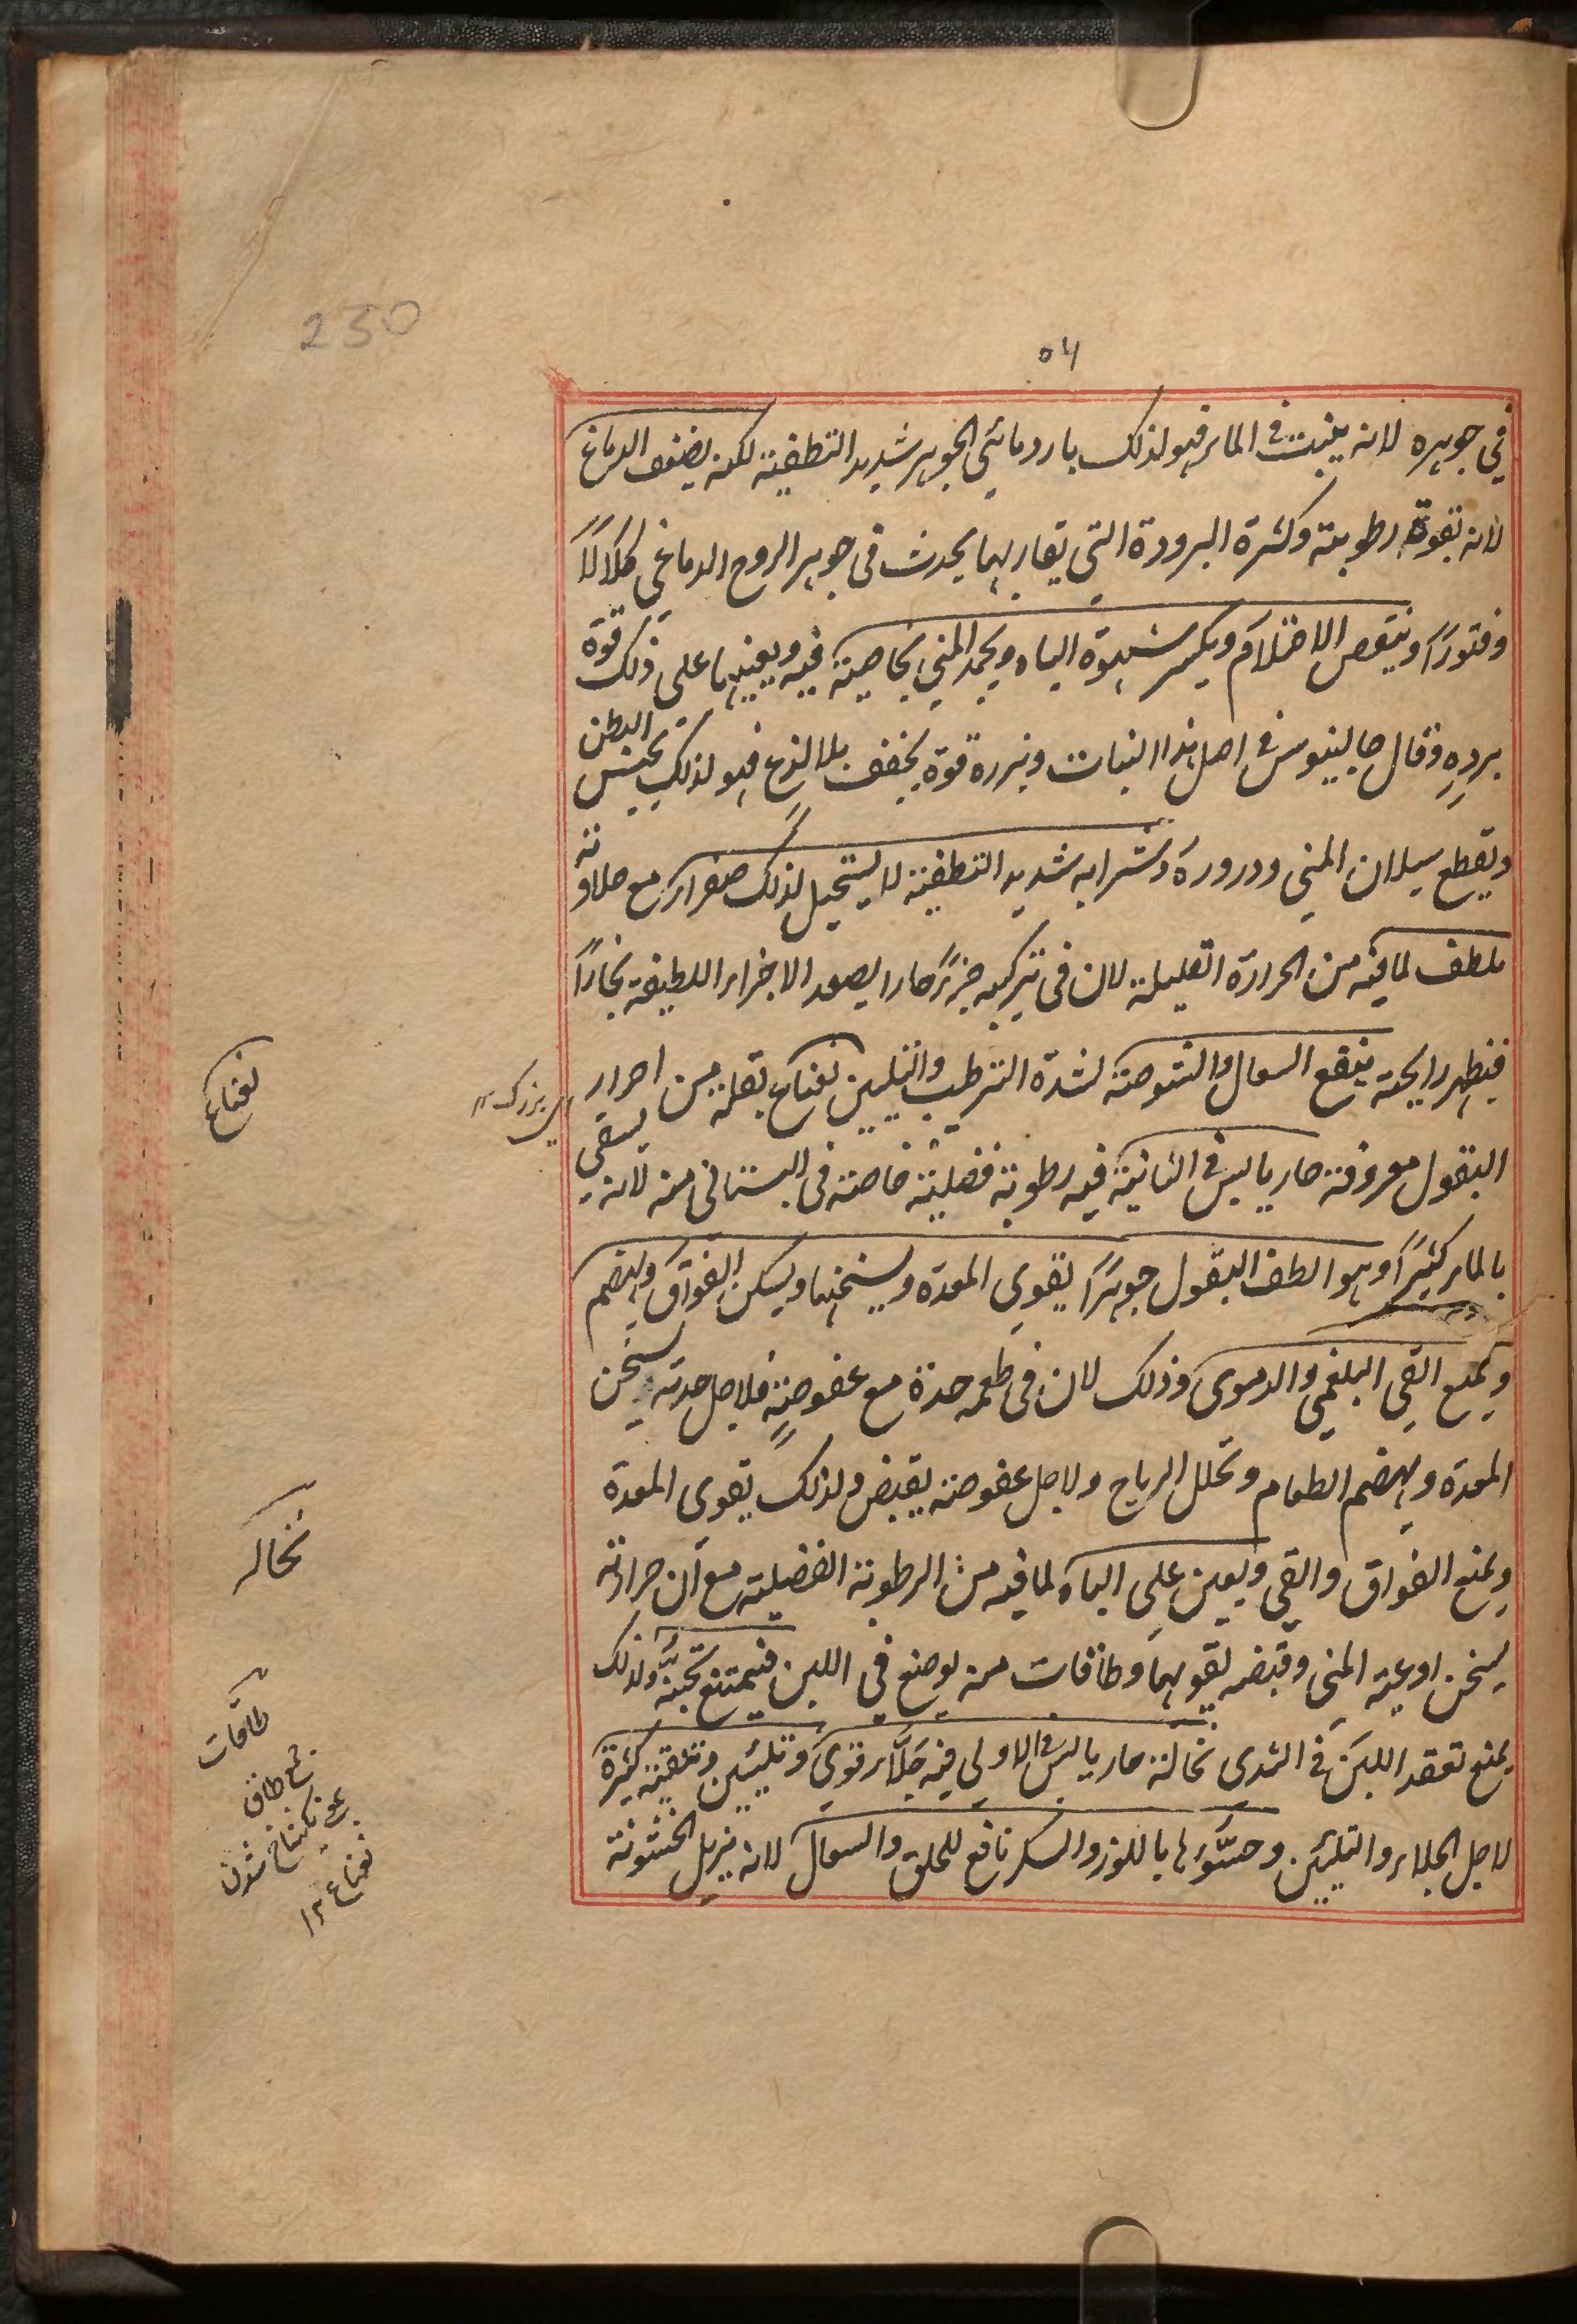 230
٥٦
في جوهره لانه ينبت في الماء فهو لذلك بارد مائي الجوهر شديد التطفية لكنه يضعف الدماغ
لانه بقوة رطوبته وكثرة البرودة التي يقاربها يحدث في جوهر الروح الدماغي كلالاً
وفتوراً وينقص الاحتلام ويكسر شهوة الباه ويجمد المني بخاصية فيه ويعينها على ذلك قوة
برده وقال جالينوس في اصل هذا النبات وبزره قوة يجفف بلا لذع فهو لذلك يحبس البطن
ويقطع سيلان المني ودروره وشرابه شديد التطفية لا يستحيل لذلك صفراء مع حلاوته
ملطف لما فيه من الحرارة القليلة لان في تركيبه جزءً حارا يصعد الاجزاء اللطيفة بخاراً
فيظهر رايحته ينفع السعال والشوصة لشدة الترطيب والتليين نعناع بقلة من احرار
البقول معروفة حار يابس في الثانية فيه رطوبة فضلية خاصة في البستاني منه لانه يسقى
بالماء كثيراً وهو الطف البقول جوهراً يقوي المعدة ويسخنها ويسكن الفواق ويهضم
ويمنع القي البلغمي والدموي وذلك لان في طعمه حدة مع عفوصةٍ فلاجل حدته يسخن
المعدة ويهضم الطعام وتحلل الرياح ولاجل عفوصته يقبض ولذلك يقوى المعدة
ويمنع الفواق والقي ويعين على الباه لما فيه من الرطوبة الفضلية مع ان حرارته
يسخن اوعية المني وقبضه يقويها وطاقات منه يوضع في اللبن فيمتنع تجبنه ولذلك
يمنع تعقد اللبن في الثدي نخالة حار يابس في الاولى فيه جلاء قوي وتليين وتنقية كثيرة
لاجل الجلاء والتليين وحسوها باللوز والسكر نافع للحلق والسعال لانه يزيل الخشونة
نعناع
نخاله
طاقات
جمع طاق
نعناع ١٢